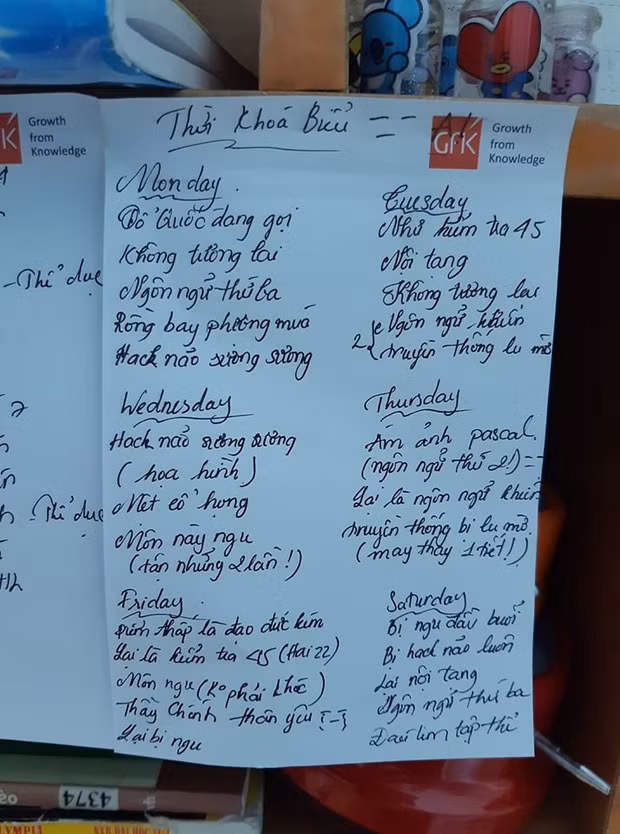 Growth
from
Knowledge
Thời Khoá Biểu ==
GfK
Growth
from
Knowledge
Monday
Tổ Quốc đang gọi
Không tương lai
Ngôn ngữ thứ ba
Rồng bay phượng múa
Hack não sương sương
Tuesday
Như kiểm tra 45
Nội tang
Không tương lai
2 Ngôn ngữ khiến
truyền thống lu mờ
-Thể dục
Wednesday
Hack não sương sương
(họa hình)
Mệt cổ họng
Môn này ngu
(tận những 2 lần!)
Thursday
Ám ảnh pascal.
(ngôn ngữ thứ 2!) ==
Lại là ngôn ngữ khiến
truyền thống bị lu mờ
(may thay 1 tiết!)
-Thể dục
Friday
Điểm thấp là đạo đức kém
Lại là kiểm tra 45 (Hai 22)
Môn ngu (Ko phải khóc)
Thầy Chánh thân yêu
Lại bị ngu
Saturday
Bị ngu đầu buổi
Bị hack não luôn
Lại nội tang
Ngôn ngữ thứ ba
Đau tim tập thể
4374